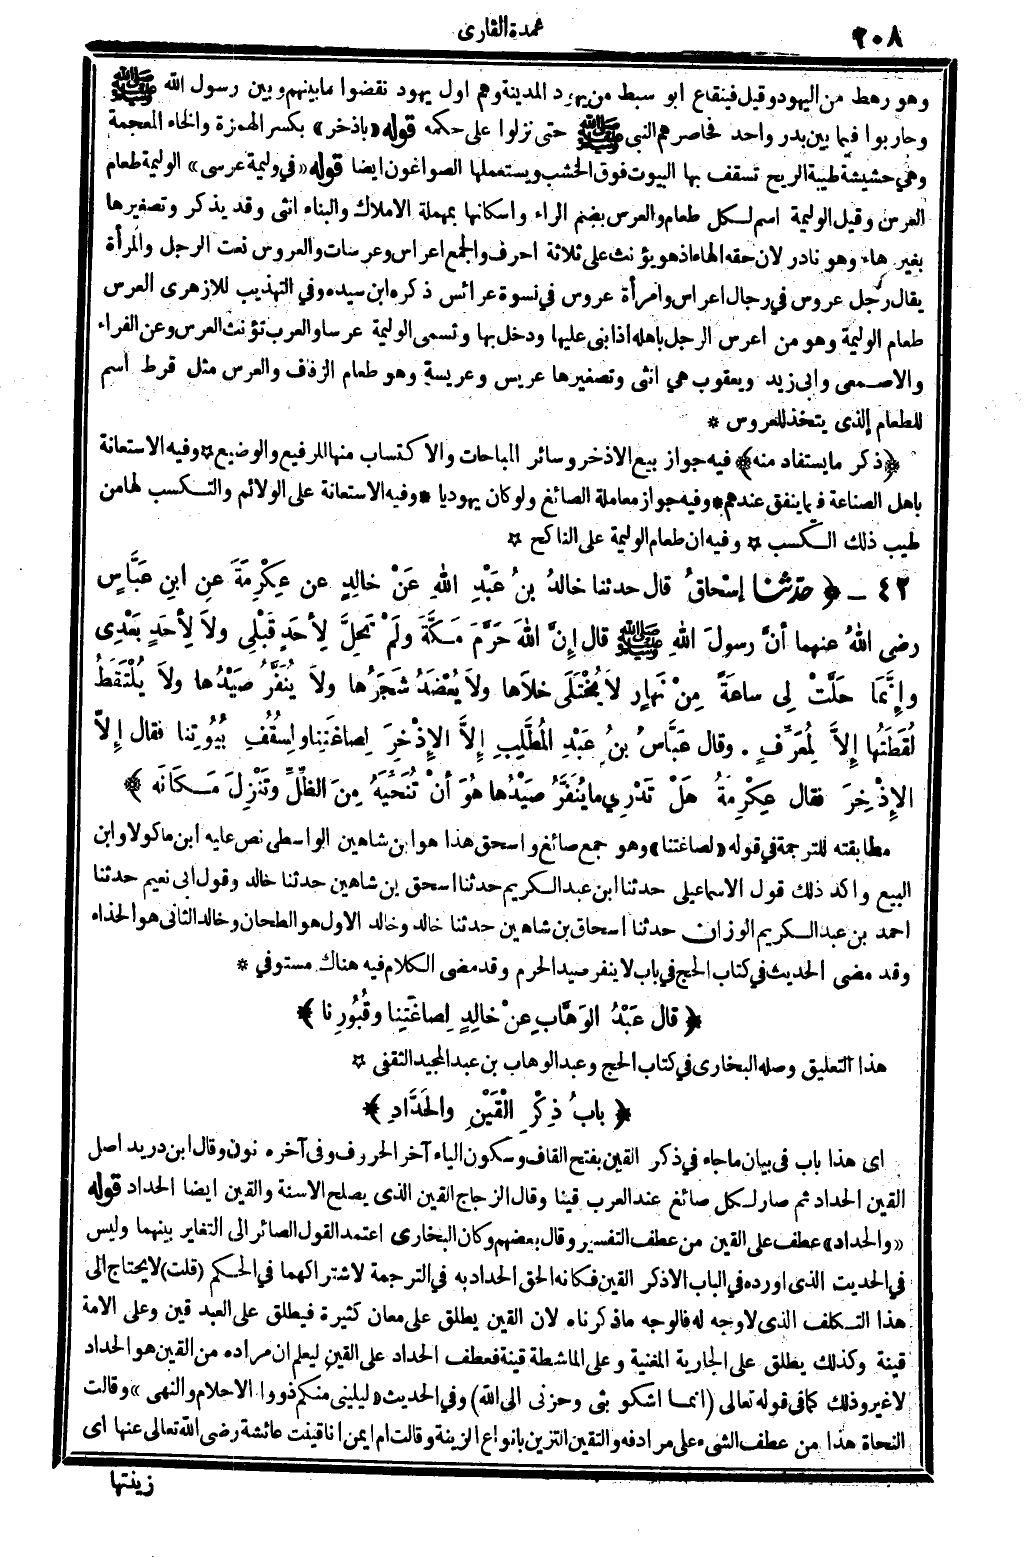 ٢٠٨
عمدة القارى
وهو رهط من اليهود وقيل قينقاع ابو سبط من يهود المدينة وهم اول يهود نقضوا ما بينهم وبين رسول الله ﷺ
وحاربوا فيما بين بدر واحد فحاصرهم النبي ﷺ حتى نزلوا على حكمه قوله «باذخر» بكسر الهمزة والخاء المعجمة
وهي حشيشة طيبة الريح تسقف بها البيوت فوق الخشب ويستعملها الصواغون ايضا قوله «في وليمة عرسى» الوليمة طعام
العرس وقيل الوليمة اسم لكل طعام والعرس بضم الراء واسكانها بمهملة الاملاك والبناء انثى وقد يذكر وتصغيرها
بغير هاء وهو نادر لان حقه الهاء اذ هو يؤنث على ثلاثة احرف والجمع اعراس وعرسات والعروس نعت الرجل والمرأة
يقال رجل عروس في رجال اعراس وامرأة عروس في نسوة عرائس ذكره ابن سيده وفي التهذيب للازهرى العرس
طعام الوليمة وهو من اعرس الرجل باهله اذا بنى عليها ودخل بها وتسمى الوليمة عرسا والعرب تؤنث العرس وعن الفراء
والاصمعى وابى زيد ويعقوب هي انثى وتصغيرها عريس وعريسة وهو طعام الزفاف والعرس مثل قرط اسم
للطعام الذى يتخذ للعروس *
﴿ذكر ما يستفاد منه﴾ فيه جواز بيع الاذخر وسائر المباحات والاكتساب منها للرفيع والوضيع * وفيه الاستعانة
باهل الصناعة فيما ينفق عندهم * وفيه جواز معاملة الصائغ ولو كان يهوديا * وفيه الاستعانة على الولائم والتكسب لها من
طيب ذلك الكسب * وفيه ان طعام الوليمة على الناكح *
٤٢ ـ ﴿ حدثنا إسْحاقُ قال حدثنا خالدُ بنُ عَبْدِ اللهِ عَنْ خالِدٍ عن عِكْرِمَةَ عنِ ابنِ عَبَّاسٍ
رضى اللهُ عنهما أنَّ رسولَ اللهِ ﷺ قال إنَّ اللهَ حَرَّمَ مَكَّةَ ولَمْ تَحِلَّ لِأحَدٍ قَبْلِى ولاَ لِأحَدٍ بَعْدِى
وإنَّمَا حَلَّتْ لِى ساعَةً مِنْ نَهارٍ لاَ يُخْتَلَى خَلاَها ولاَ يُعْضَدُ شَجَرُها ولاَ يُنَفَّرُ صَيْدُها ولاَ يُلْتَقَطُ
لُقَطَتُها إلاَّ لِمُعَرِّفٍ . وقال عَبَّاسُ بنُ عَبْدِ المُطَّلِبِ إلاَّ الإذْخِرَ لِصاغَتِنا ولِسُقُفِ بُيُوتِنا فقال إلاَّ
الإذْخِرَ فقال عِكْرِمَةُ هَلْ تَدْرِي ما يُنَفَّرُ صَيْدُها هُوَ أنْ تُنَحِّيَهُ مِنَ الظِّلِّ وتَنْزِلَ مَكانَه ﴾
مطابقته للترجمة في قوله «لصاغتنا» وهو جمع صائغ واسحق هذا هو ابن شاهين الواسطى نص عليه ابن ماكولا وابن
البيع واكد ذلك قول الاسماعيلى حدثنا ابن عبد الكريم حدثنا اسحق بن شاهين حدثنا خالد وقول ابى نعيم حدثنا
احمد بن عبد الكريم الوزان حدثنا اسحاق بن شاهين حدثنا خالد وخالد الاول هو الطحان وخالد الثانى هو الحذاء
وقد مضى الحديث في كتاب الحج في باب لا ينفر صيد الحرم وقد مضى الكلام فيه هناك مستوفي *
﴿ قال عَبْدُ الوَهَّابِ عنْ خالِدٍ لِصاغَتِنا وقُبُورِنا ﴾
هذا التعليق وصله البخارى في كتاب الحج وعبد الوهاب بن عبد المجيد الثقفى *
﴿ بابُ ذِكْرِ الْقَيْنِ والحَدَّادِ ﴾
اى هذا باب فى بيان ما جاء في ذكر القين بفتح القاف وسكون الياء آخر الحروف وفى آخره نون وقال ابن دريد اصل
القين الحداد ثم صار لكل صائغ عند العرب قينا وقال الزجاج القين الذى يصلح الاسنة والقين ايضا الحداد قوله
«والحداد» عطف على القين من عطف التفسير وقال بعضهم وكان البخارى اعتمد القول الصائر الى التغاير بينهما وليس
في الحديث الذى اورده في الباب الا ذكر القين فكانه الحق الحداد به في الترجمة لاشتراكهما في الحكم (قلت) لا يحتاج الى
هذا التكلف الذى لا وجه له فالوجه ما ذكرناه لان القين يطلق على معان كثيرة فيطلق على العبد قين وعلى الامة
قينة وكذلك يطلق على الجارية المغنية وعلى الماشطة قينة فعطف الحداد على القين ليعلم ان مراده من القين هو الحداد
لا غير وذلك كما في قوله تعالى (انما اشكو بثى وحزنى الى الله) وفي الحديث «ليلينى منكم ذووا الاحلام والنهى» وقالت
النحاة هذا من عطف الشىء على مرادفه والتقين التزين بانواع الزينة وقالت ام ايمن انا قينت عائشة رضى الله تعالى عنها اى
زينتها